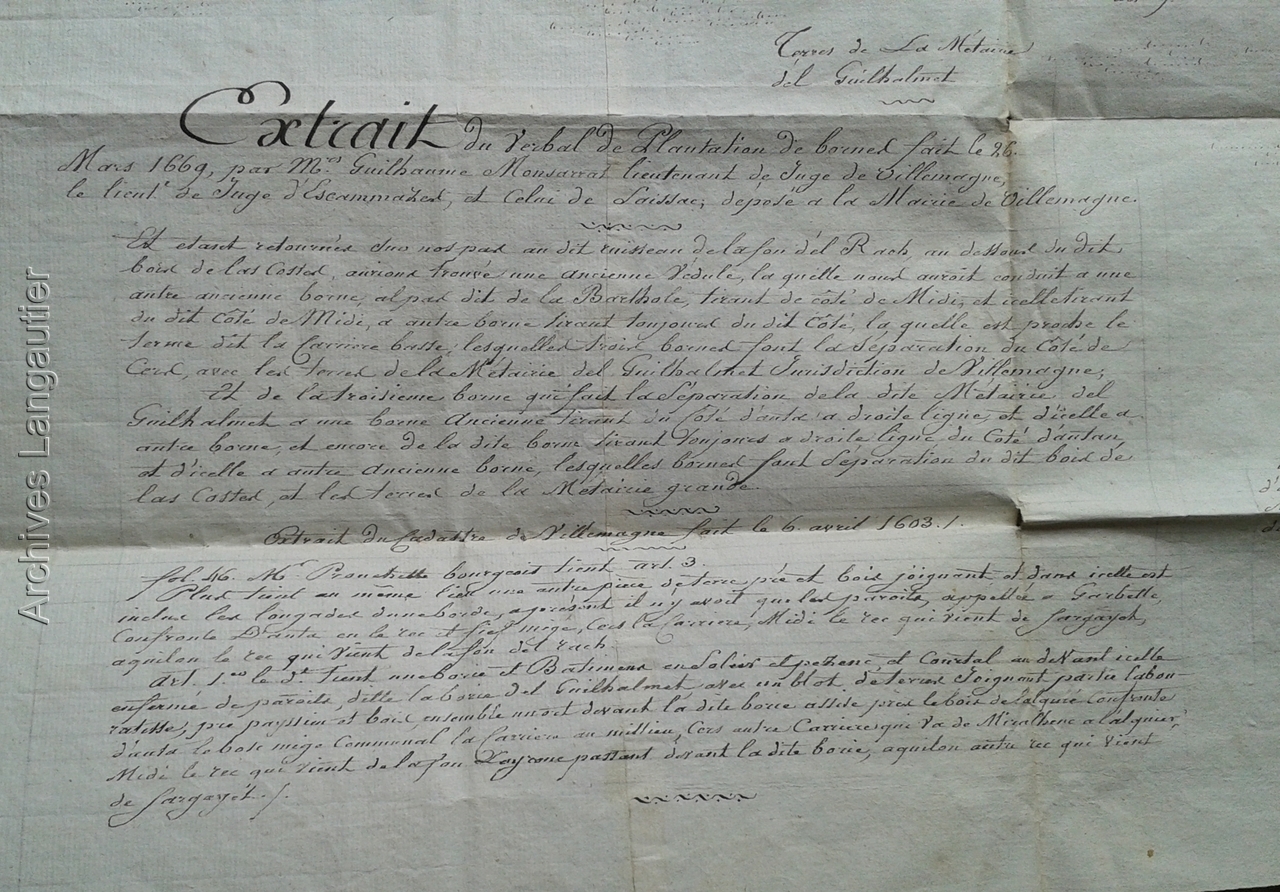 Terres de La Métairie
del Guilhalmet
Extrait du Verbal de Plantation de bornes fait le 26.
Mars 1669, par Mrs. Guilhaume Monsarrat lieutenant de Juge de Villemagne,
le lieut. de Juge d'Escammazes, et Celui de Saissac; déposé a la Mairie de Villemagne.
Et etant retournés sur nos pas au dit ruisseau de la fon del Rach, au dessous du dit
bois de las Costes, aurions trouvé une ancienne Védule, la quelle nous auroit conduit a une
autre ancienne borne, al pas dit de la Barthole, tirant de côté de Midi, et icelle tirant
du dit Côté de Midi, a autre borne tirant toujours du dit Côté, la quelle est proche le
terme dit la Carriere basse; lesquelles trois bornes font la Séparation du Côté de
Cers, avec les terres de la Métairie del Guilhalmet Jurisdiction de Villemagne;
Et de la troisieme borne qui fait la Séparation de la dite Métairie del
Guilhalmet a une borne Ancienne tirant du Coté d'auta a droite ligne, et d'icelle a
autre borne, et encore de la dite borne tirant toujours a droite ligne du Coté d'autan,
et d'icelle a autre Ancienne borne, lesquelles bornes font Séparation du dit bois de
las Costes, et les terres de la Métairie grande.
Extrait du Cadastre de Villemagne fait le 6. avril 1603./.
fol. 46. Mr. bourgeois tient art. 3.
Plus tient au même lieu une autre pièce de terre pré et bois joignant et dans icelle est
inclus les longades d'une borde, a present il n'y avoit que les parois, appellée a Garbelle,
Confronte D'auta en le rec et fief mige, Cers la Carriere, Midi le rec qui vient de fargayot,
aquilon le rec qui vient de la fon del rach.
Art. 1er le dt. tient une borie et Bâtimens en Solier et pezenc, et Courtal au devant icelle
enfermé de parois, dite la borie del Guilhalmet avec un blot de terres Joignant partie labou-
ratisse, pré payssieu et bois, ensemble un ort devant la dite borne assise près le bois de Confronte
d'auta le bosc mige Communal la Carriere au millieu, Cers autre Carriere que va de Miralbenc a
Midi le rec qui vient de la fon passant devant la dite borne, aquilon autre rec qui vient
de fargayot ./.
Archives Langautier